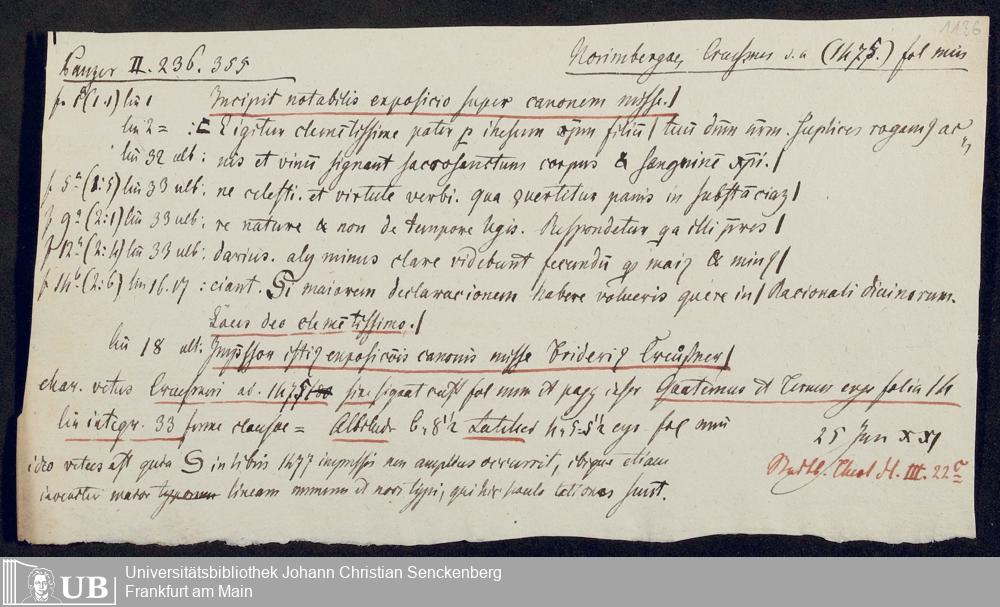 1136
Panzer II. 236. 355
Norimbergae Creussner s. a (1475.) fol min
f. 1a (1.1) lin 1 Incipit notabilis exposicio super canonem misse./
lin 2 = : E igitur clemētissime pater p ihesum xpm filiū / tuū dnm nrm. suplices rogam9 ac
lin 32 ult: nis et vinū signant sacrosanctum corpus & sanguinē xpi./
f 5a (1:5) lin 33 ult: ne celesti. et virtute verbi. qua 9uertitur panis in substāciaz/
f 9a (2:1) lin 33 ult: re nature & non de tempore legis. Respondetur qa illi pres/
f 12a (2:4) lin 33 ult: darius. aly minus clare videbunt secundū maiq & minq/
f 14b (2:6) lin 16.17 : ciant. Si maiorem declaracionem habere volueris quere in / Racionali diuinorum.
Laus deo clemētissimo./
lin 18 ult: Impssor istiq exposicōis canonis misse Frideriq Creusner/
char. vetus Creusneri ad. 1475 sine signat cust fol num et pagg inscr Quaternus et Ternus ergo folia 14
lin integr. 33 forme clausae = 8 1/2 5 1/2 ergo fol min
25 Jun XXI
ideo vetus est quia S in libris 1477 impressis non amplius occurrit, ibique etiam
invenitur maior lineam numerus et novi typi, qui hic paulo latiores sunt.
Theol III. 22
UB
Universitätsbibliothek Johann Christian Senckenberg
Frankfurt am Main